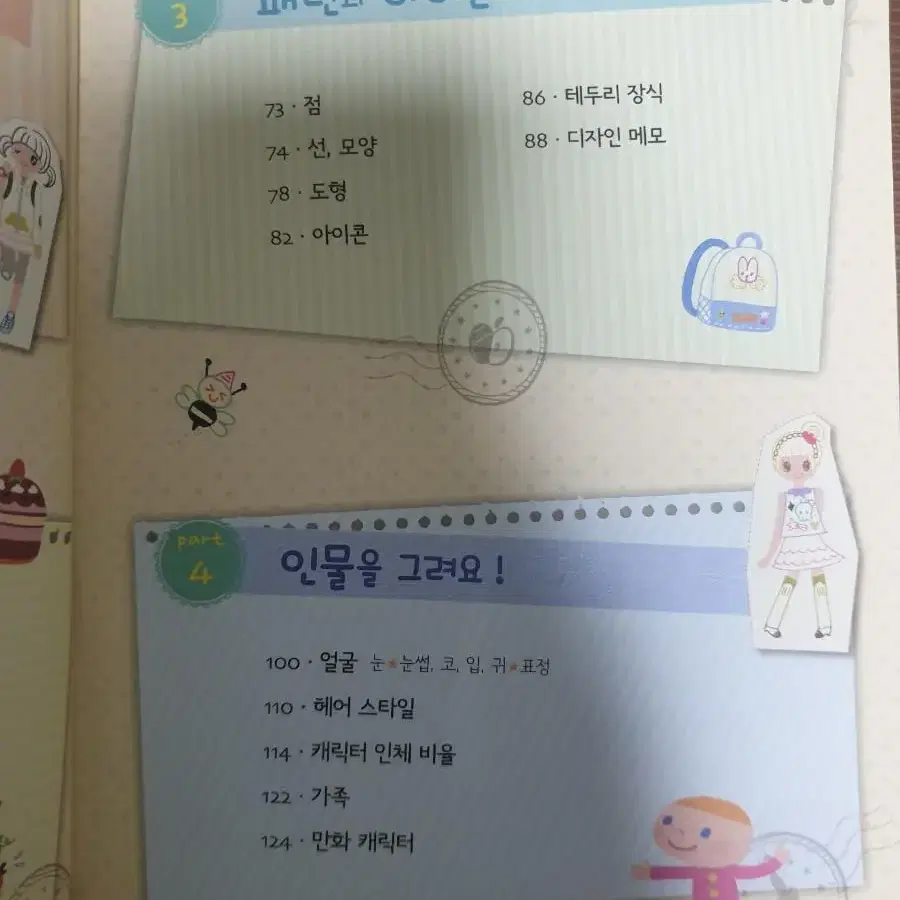 3
73 · 점
74 · 선, 모양
78 · 도형
82 · 아이콘
86 · 테두리 장식
88 · 디자인 메모
part
4
인물을 그려요!
100 · 얼굴 눈★눈썹, 코, 입, 귀★표정
110 · 헤어 스타일
114 · 캐릭터 인체 비율
122 · 가족
124 · 만화 캐릭터